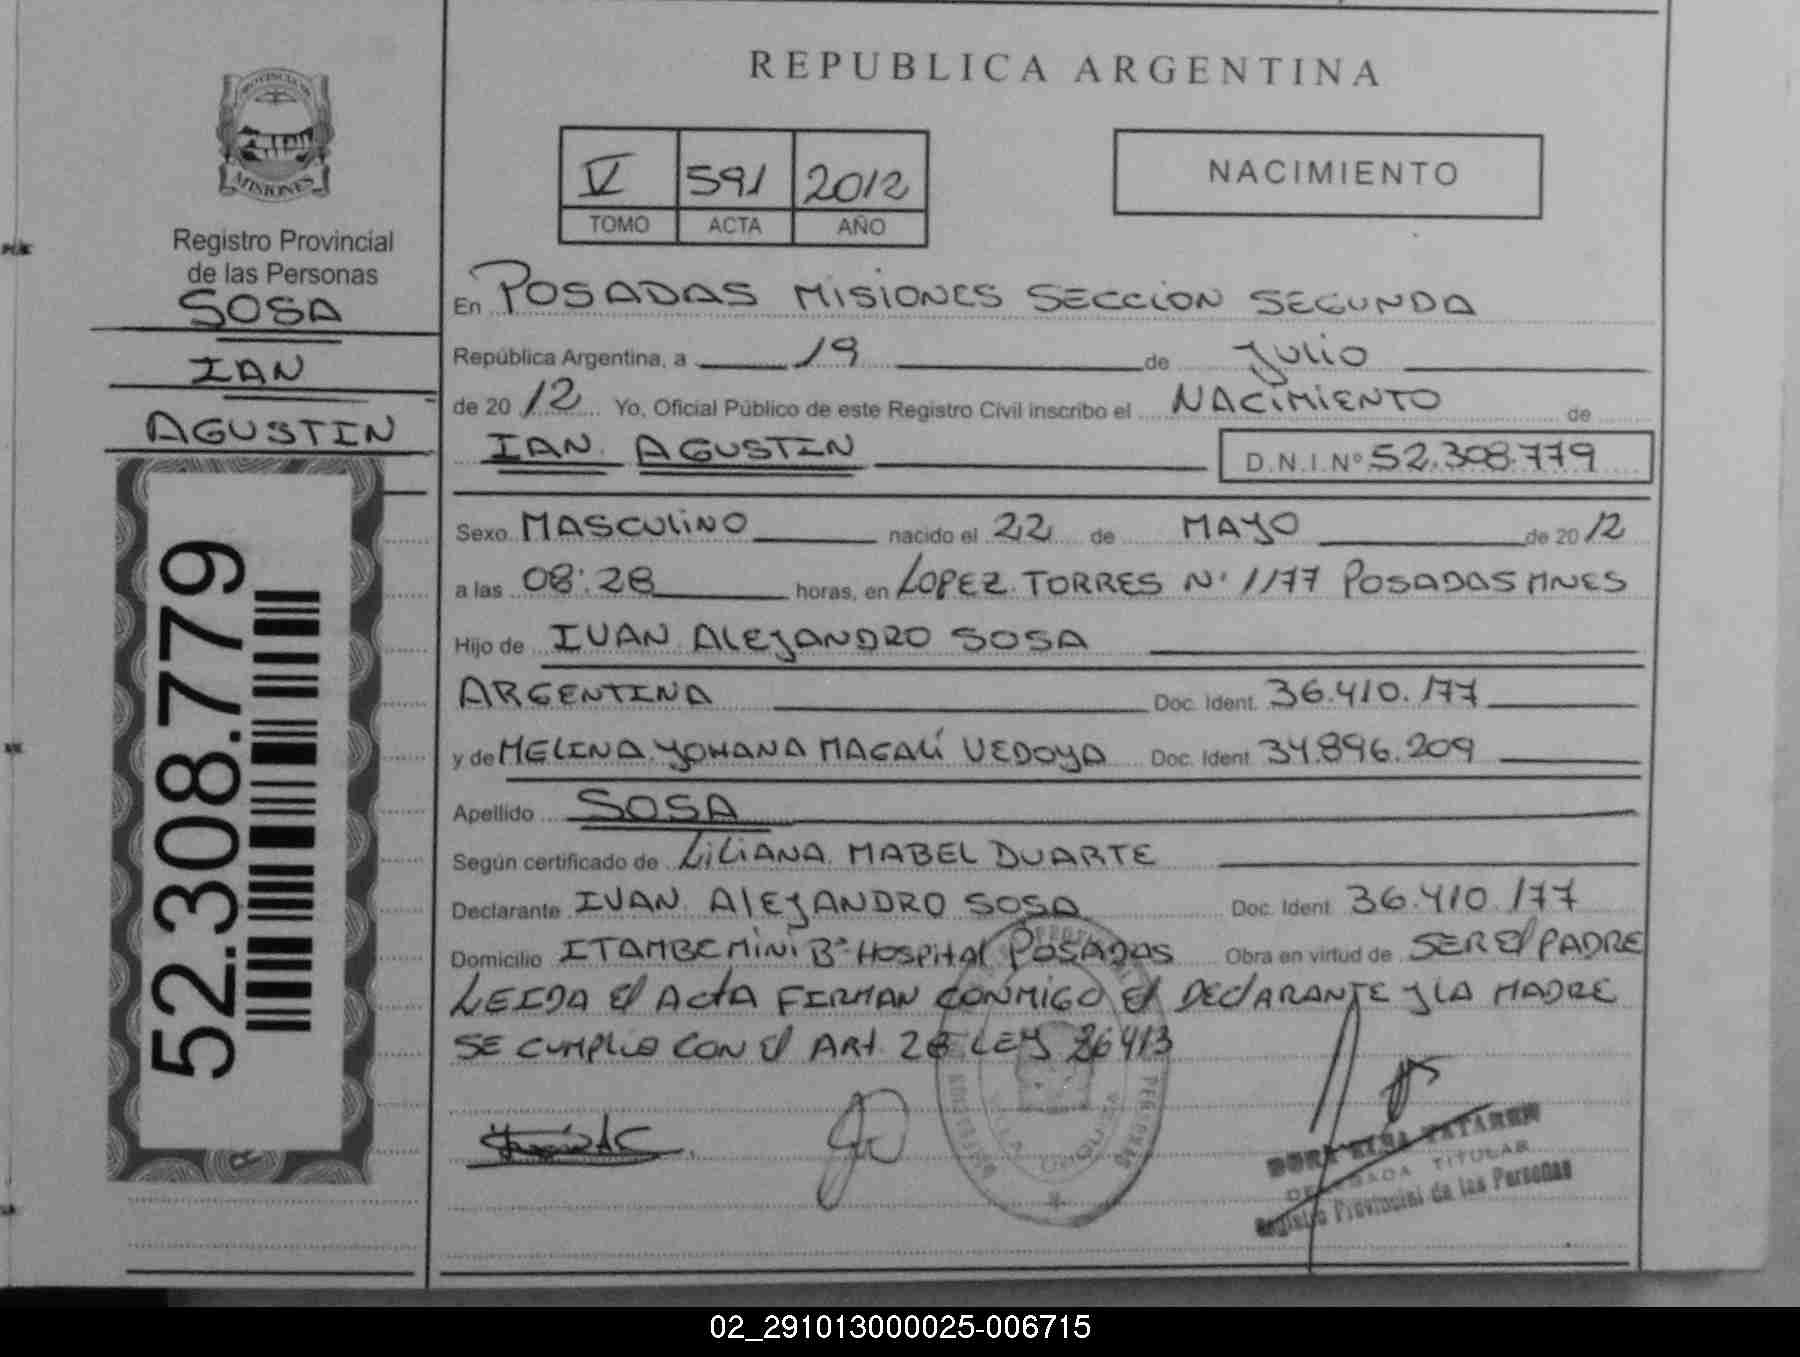 PROVINCIA DE
MISIONES
Registro Provincial
de las Personas
SOSA
IAN
AGUSTIN
52.308.779
REPUBLICA ARGENTINA
V 591 2012
TOMO ACTA AÑO
NACIMIENTO
En POSADAS MISIONES SECCION SEGUNDA
República Argentina, a 19 de Julio
de 2012 Yo, Oficial Público de este Registro Civil inscribo el NACIMIENTO de
IAN AGUSTIN D.N.I. Nº 52.308.779
Sexo MASCULINO nacido el 22 de MAYO de 2012
a las 08:28 horas, en LOPEZ TORRES Nº 1177 POSADAS MNES
Hijo de IVAN ALEJANDRO SOSA
ARGENTINA Doc. Ident. 36.410.177
y de MELINA YOHANA MAGALÍ VEDOYA Doc. Ident 34.896.209
Apellido SOSA
Según certificado de LILIANA MABEL DUARTE
Declarante IVAN ALEJANDRO SOSA Doc. Ident 36.410.177
Domicilio ITAMBE MINI Bº HOSPITAL POSADAS Obra en virtud de SER El PADRE
LEIDA El ACTA FIRMAN CONMIGO El DEClARANTE y LA MADRE
SE CUMPLIO CON El ART. 28 LEY 26413
TITULAR
Registro Provincial de las Personas
02_291013000025-006715